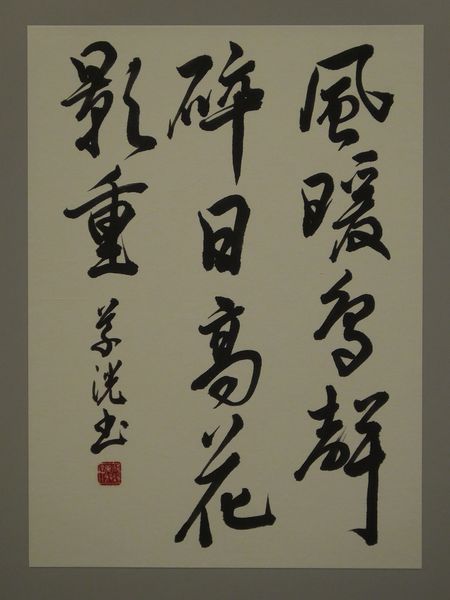 風暖鳥聲
碎日高花
影重
書